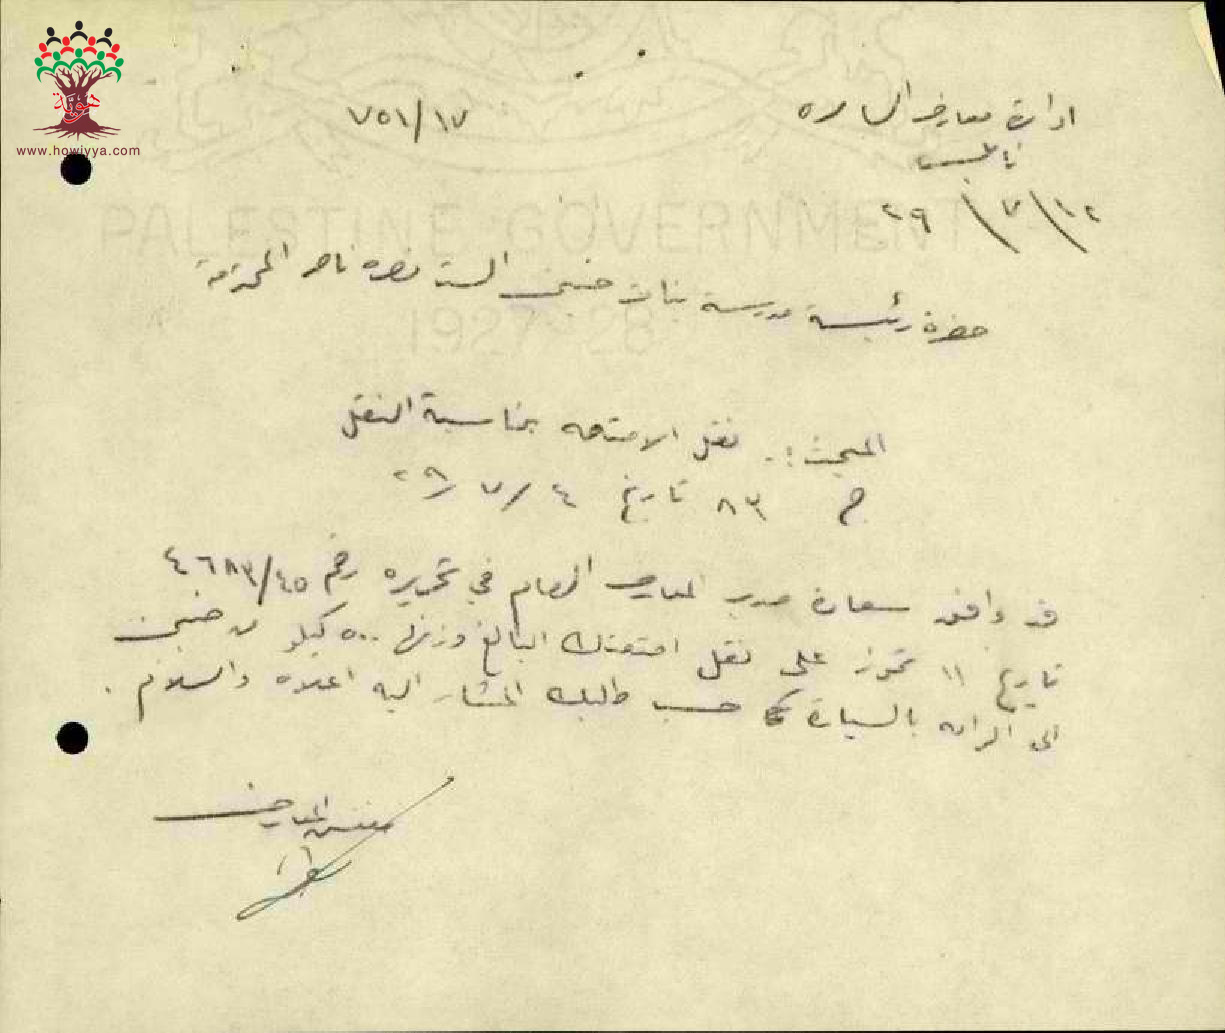 هوية
www.howiyya.com
ادارة معارف السامره
٧٥١/١٧
نابلس
١٢/٧/٢٩
PALESTINE GOVERNMENT
1927-28
حضرة رئيسة مدرسة بنات جنين الست نصره ناصر المحترمة
المبحث :. نقل الامتعه بمناسبة النقل
ج ٨٣ تاريخ ٤/٧/٢٩
قد وافق سعادة مدير المعارف العام في تحريره رقم ٤٦٨٣/٤٥
تاريخ ١١ تموز على نقل امتعتك البالغ وزنها ٥٠٠ كيلو من جنين
الى الرامه بالسيارة حسب طلبك المشار اليه اعلاه والسلام .
مفتش المعارف